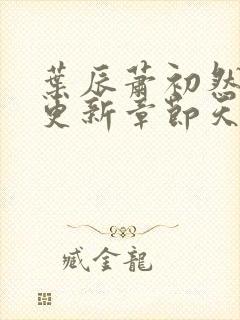 葉辰蕭初然
更新章節天
臧金龍